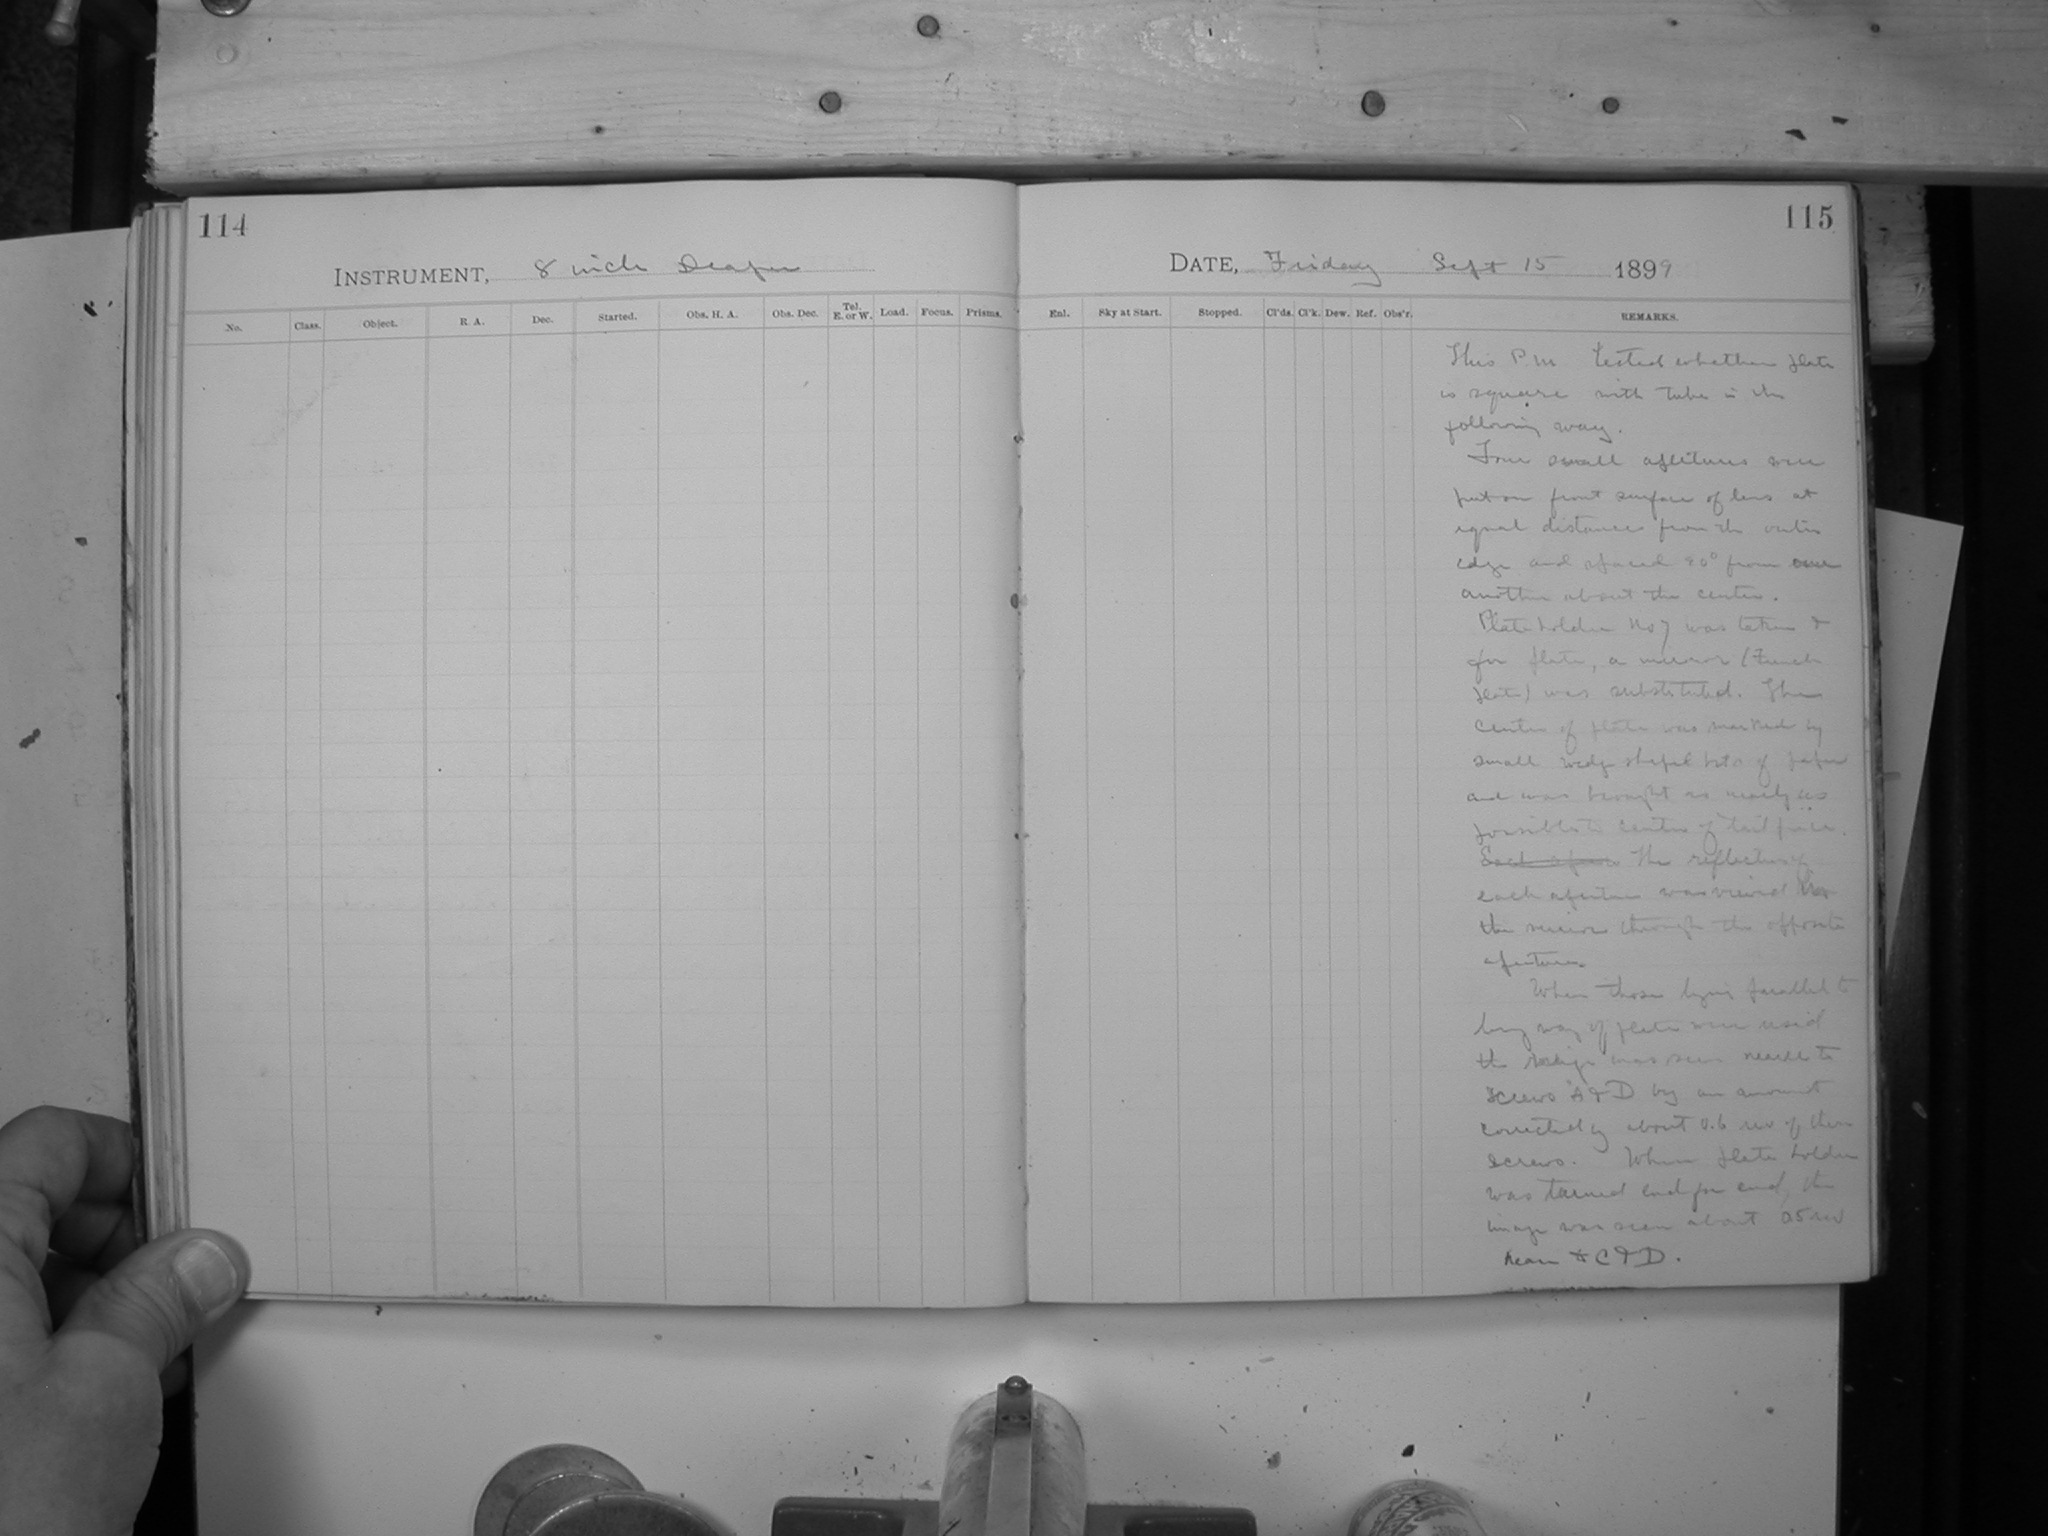 114
INSTRUMENT, 8 inch Draper
No. Class. Object. R. A. Dec. Started. Obs. H. A. Obs. Dec. Tel. E. or W. Load. Focus. Prisms.
115
DATE, Friday Sept 15 1899
Enl. Sky at Start. Stopped. Cl'ds. Cl'k. Dew. Ref. Obs'r. REMARKS.
This P.M tested whether plate
is square with tube in the
following way.
Four small apertures were
put on front surface of lens at
equal distances from the outer
edge and spaced 90° from one
another about the center.
Plate holder No 7 was taken &
for plate, a mirror (French
plate) was substituted. The
center of plate was marked by
small wedge shaped bits of paper
and was brought as nearly as
possible to center of tail piece.
Each aper The reflection of
each aperture was viewed
the mirror through the opposite
aperture.
When those lying parallel to
long way of plate were used
the image was seen nearer to
screws A & D by an amount
corrected by about 0.6 rev of these
screws. When plate holder
was turned end for end, the
image was seen about 0.5 rev
near C & D.